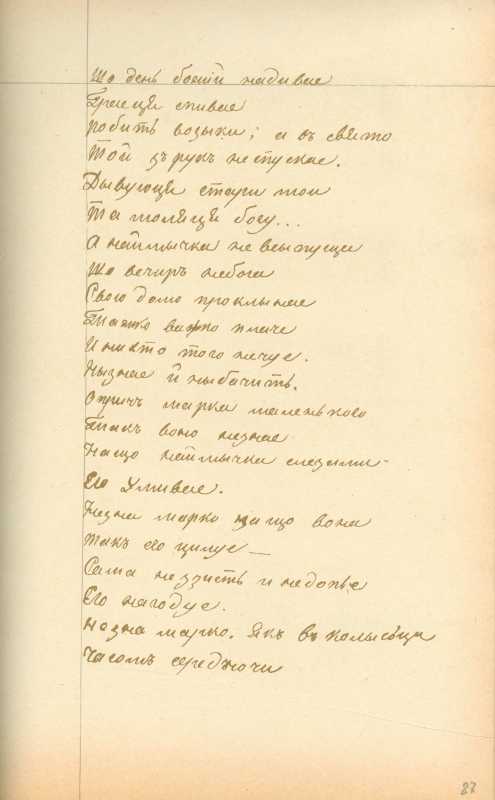 Що день божій надивае
Грается спивае
робить возыки; а въ свято
Той зъ рукъ не спускае.
Дывуюця стари мои
Та моляця богу...
А наймычка не всыпуща
Що вечиръ небога
Свою долю проклынае
Тяжко важко плаче
И нихто того нечуе.
Нызнае й ныбачить.
Опричъ марка маленького
Такъ воно незнае
Нащо наймычка слезами
Его умивае.
Незна марко защо вона
такъ его цилуе —
Сама не ззисть и недопье
Его нагодуе.
Незна марко. Якъ въ колысьци
Часомъ середъночи
87